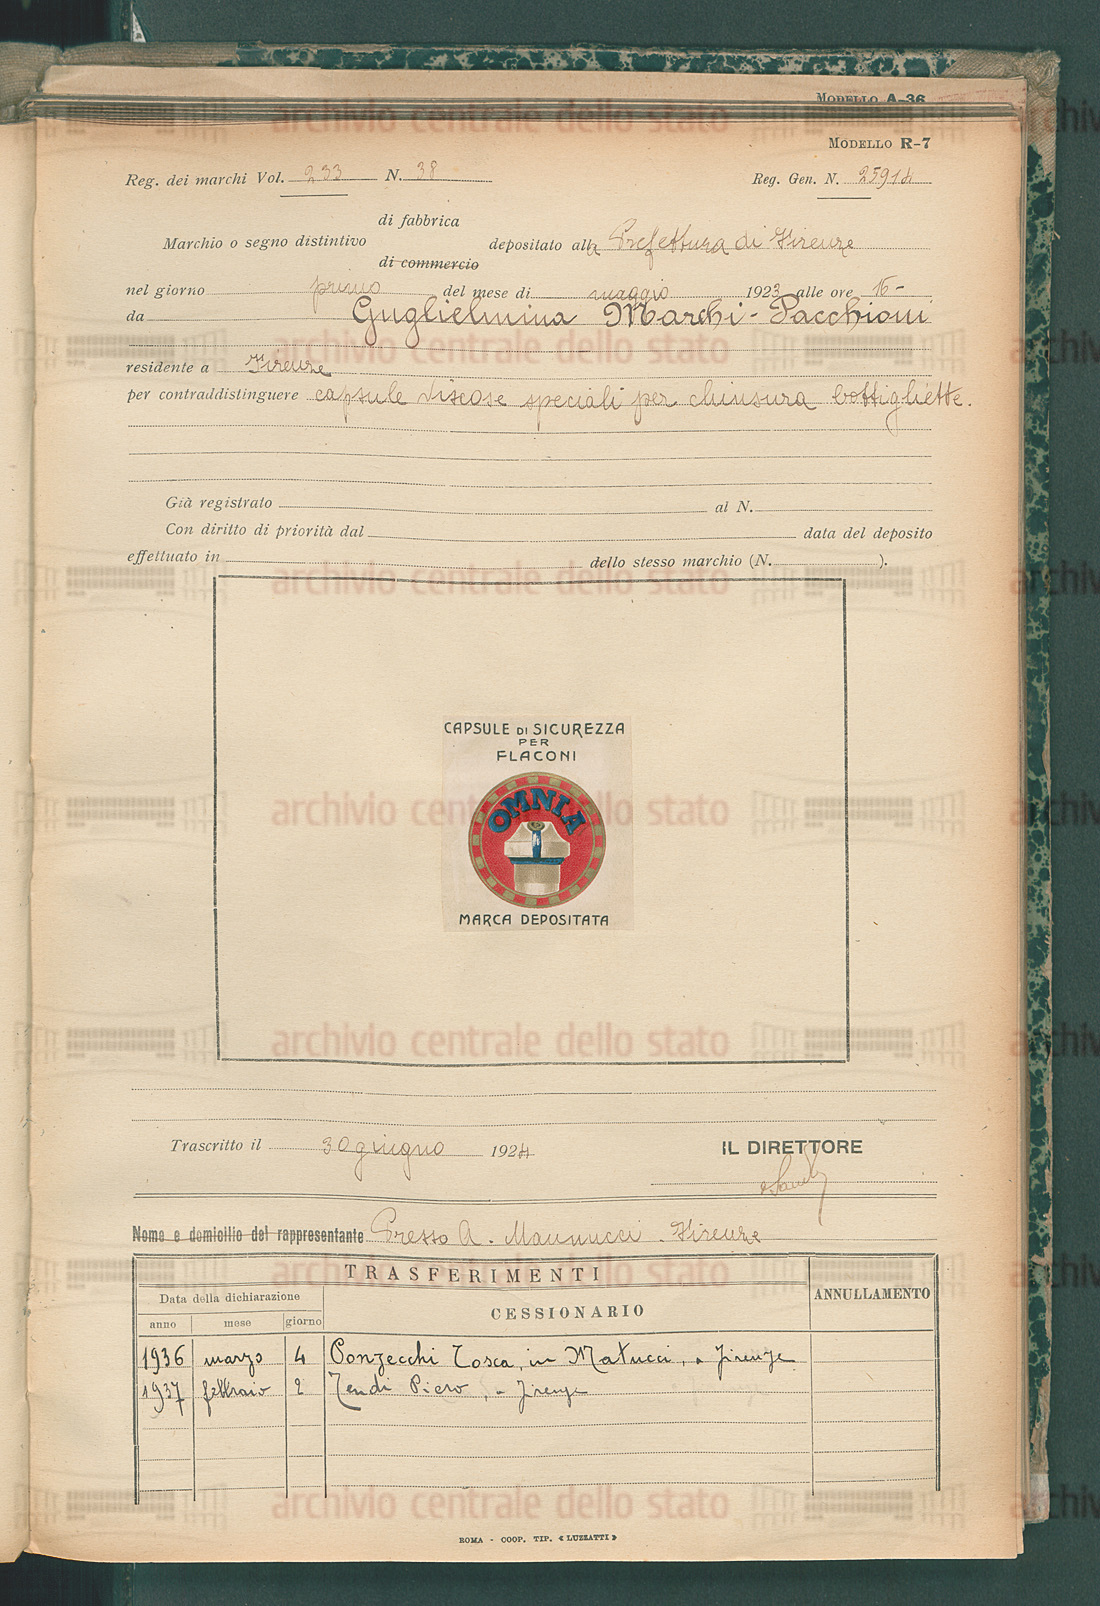 MODELLO A-36
MODELLO R-7
Reg. dei marchi Vol. 233 N. 38 Reg. Gen. N. 25914
di fabbrica
Marchio o segno distintivo depositato alla Prefettura di Firenze
di commercio
nel giorno primo del mese di maggio 1923 alle ore 16-
da Guglielmina Marchi-Pacchioni
residente a Firenze
per contraddistinguere capsule viscose speciali per chiusura bottigliette.
Già registrato al N.
Con diritto di priorità dal data del deposito
effettuato in dello stesso marchio (N. ).
CAPSULE DI SICUREZZA
PER
FLACONI
OMNIA
MARCA DEPOSITATA
Trascritto il 30 giugno 1924 IL DIRETTORE
Nome e domicilio del rappresentante Presso A. Mannucci - Firenze
TRASFERIMENTI
Data della dichiarazione CESSIONARIO ANNULLAMENTO
anno mese giorno
1936 marzo 4 Ponzecchi Tosca, in Matucci, a Firenze
1937 febbraio 2 Tendi Piero, a Firenze
ROMA - COOP. TIP. « LUZZATTI »
archivio centrale dello stato